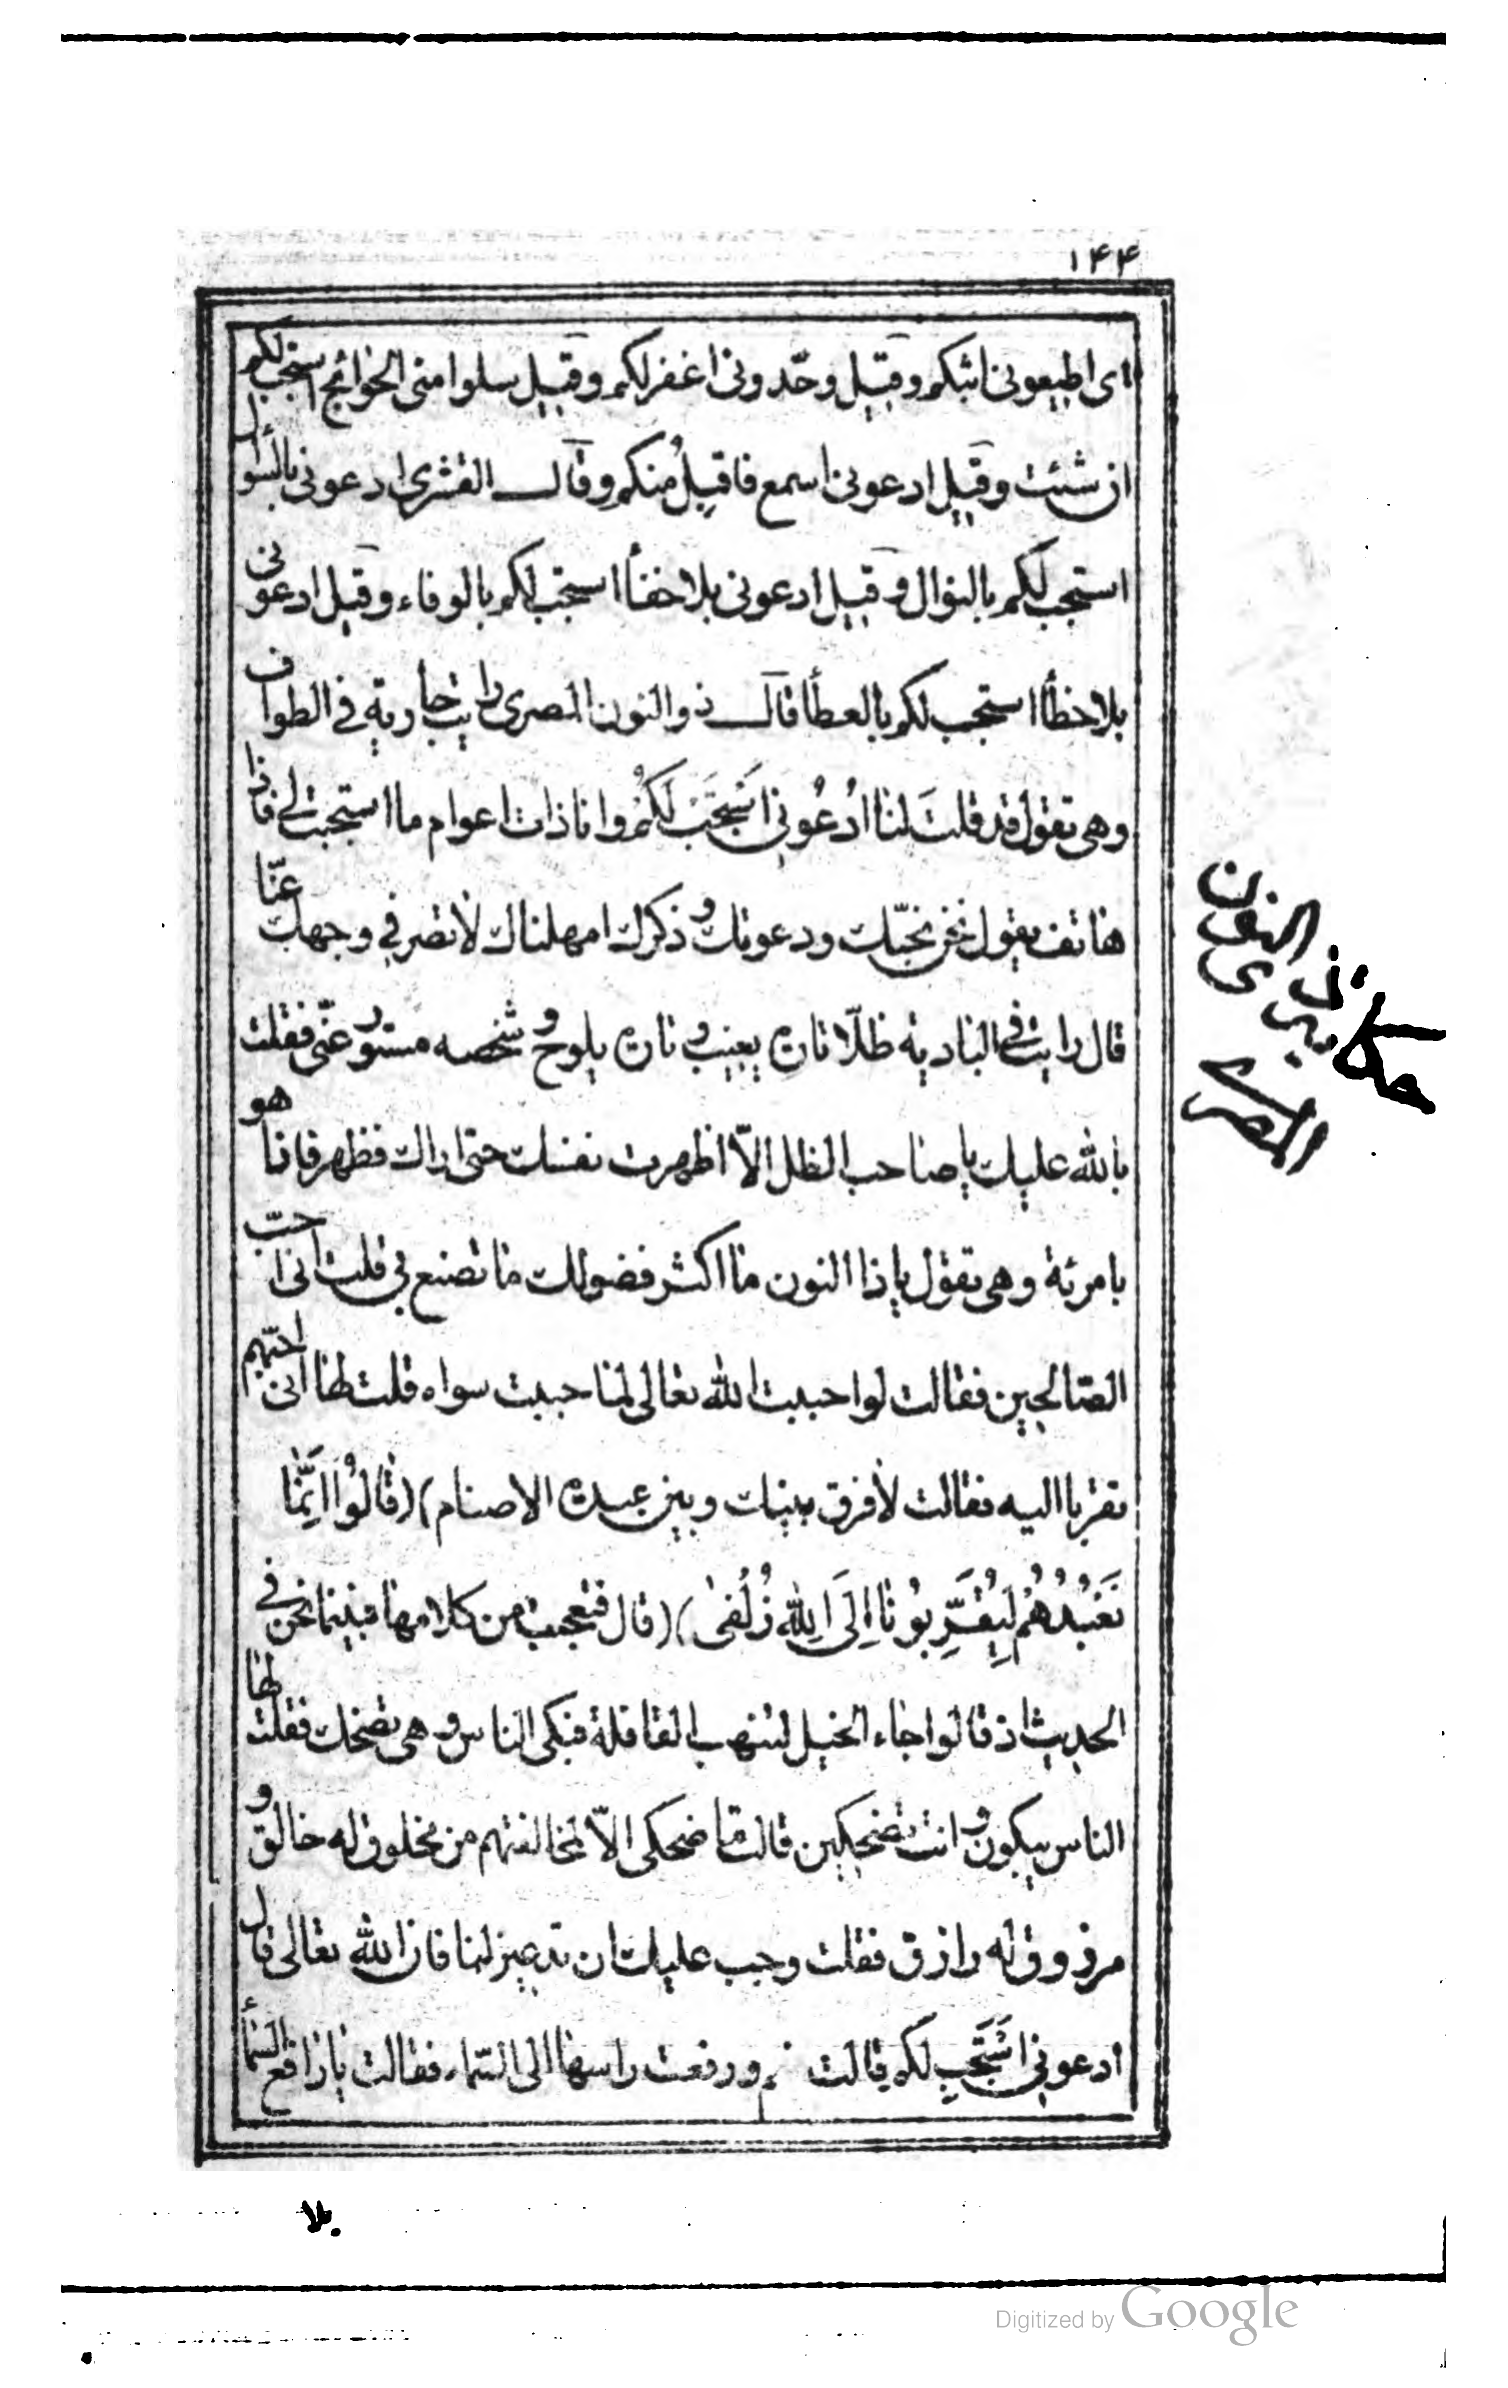 ١۴۴
ای اطیعونی اثبکم وقیل وحّدونی اغفرلکم وقیل سلوا منی الحوائج استجب لکم
ان شئت وقیل ادعونی اسمع فاقبل منکم وقال القشری ادعونی بالسؤال
استجب لکم بالنوال وقیل ادعونی بلا خفأ استجب لکم بالوفاء وقیل ادعونی
بلا خطأ استجب لکم بالعطأ قال ذوالنون المصری رایت جاریة فی الطواف
وهی تقول قد قلت لنا اُدْعُونی اَسْتَجِبْ لَکُمْ وانا ذات اعوام ما استجبت لی فاذا
هاتف یقول نحن نحبّک ودعوتک وذکرک امهلناک لا تصرفی وجهک عنّا
قال رایت فی البادیة ظلّا تارة یغیب وتارة یلوح وشخصه مستور عنّی فقلت
بالله علیک یا صاحب الظل الّا اظهرت نفسک حتی اراک فظهر فاذا هو
بامرئة وهی تقول یا ذا النون ما اکثر فضولک ما تصنع بی قلت انی احبّ
الصّالحین فقالت لو احببت الله تعالی لما حببت سواه قلت لها انی احبّهم
تقربا الیه فقالت لا فرق بینک وبین عبدة الاصنام (قالُوا اِنَّمٰا
نَعْبُدُهُمْ لِیُقَرِّبُونا اِلَی اللهِ زُلْفیٰ) (قال فتعجبت من کلامها فبینما نحن فی
الحدیث اذ قالوا جاء الخیل لتنهب القافلة فبکی الناس وهی تضحک فقلت لها
الناس یبکون وانت تضحکین قالت ما ضحکی الّا لمخالفتهم من مخلوق له خالق و
مرزوق له رازق فقلت وجب علیک ان تدعین لنا فان الله تعالی قال
ادعونی اَسْتَجِب لکم قالت نعم ورفعت راسها الی السّماء فقالت یا رافع السّمأ
حکایت
ذی النون
المصری
بلا
Digitized by Google